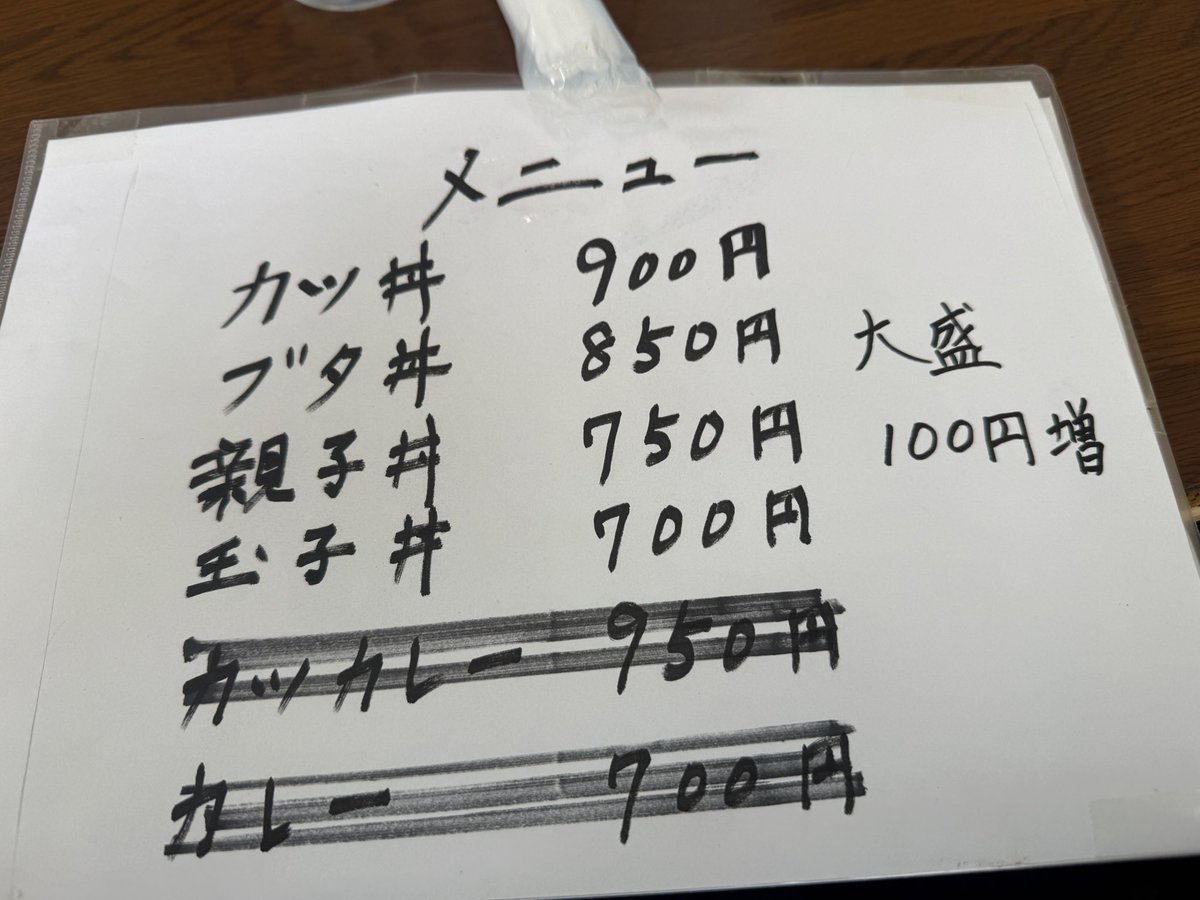 メニュー
カツ丼 900円
ブタ丼 850円 大盛
親子丼 750円 100円増
玉子丼 700円
カツカレー 950円
カレー 700円